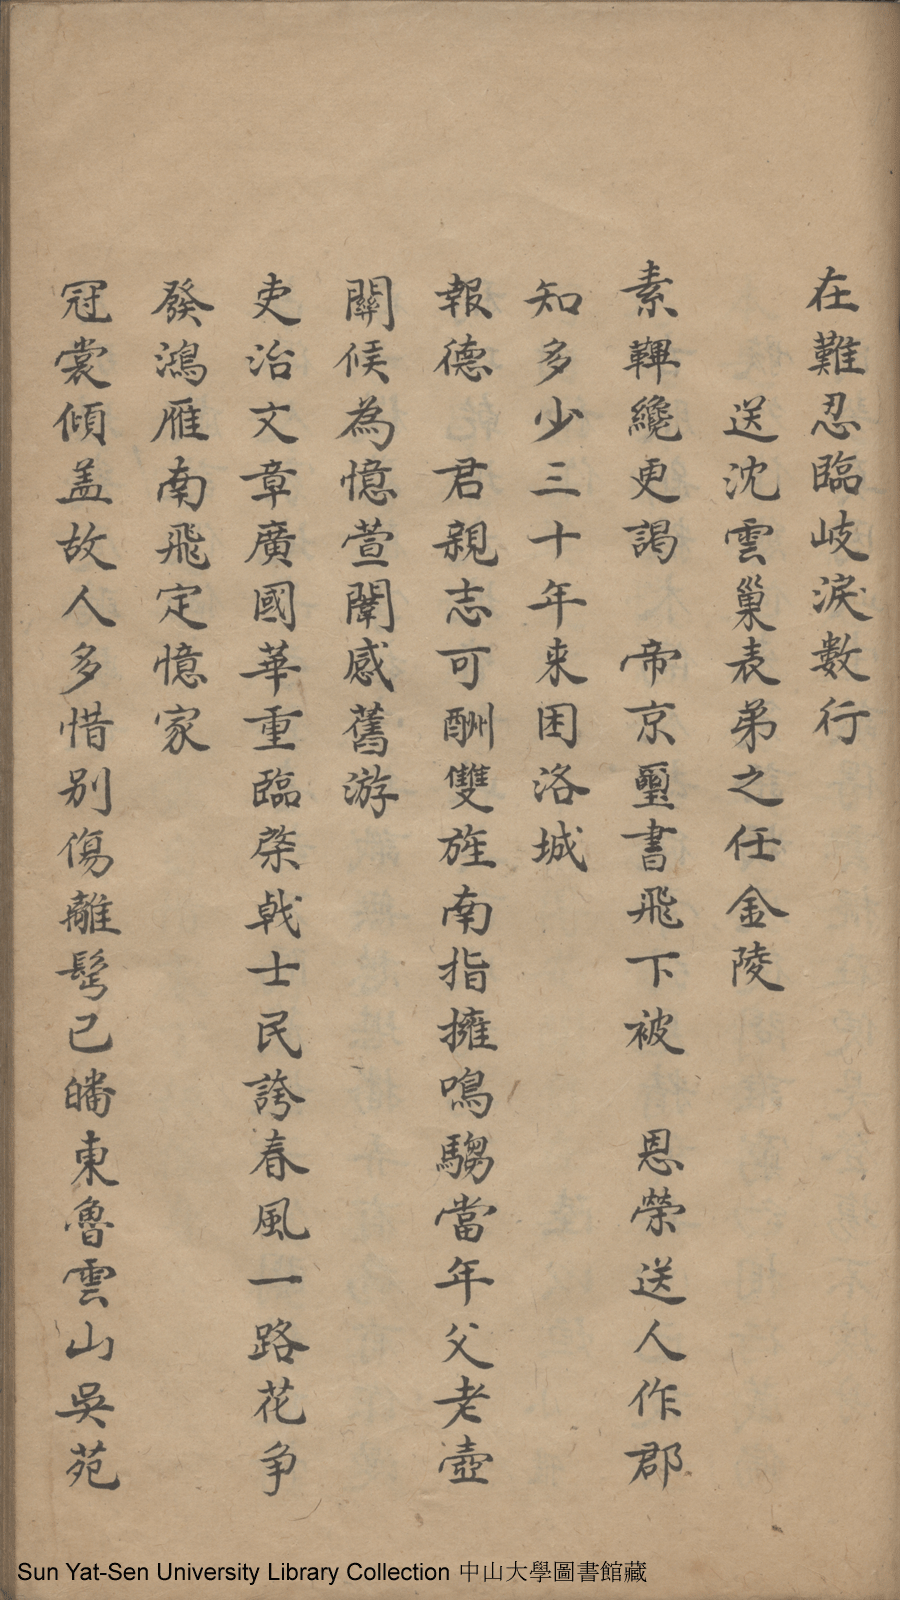 在難忍臨岐淚數行
送沈雲巢表弟之任金陵
素鞸纔更謁　帝京璽書飛下被　恩榮送人作郡
知多少三十年来困洛城
報德　君親志可酬雙旌南指擁鳴騶當年父老壺
關候為憶萱闈感舊游
吏治文章廣國華重臨棨戟士民誇春風一路花争
發鴻雁南飛定憶家
冠裳傾盖故人多惜别傷離髩已皤東魯雲山吳苑
Sun Yat-Sen University Library Collection 中山大學圖書館藏